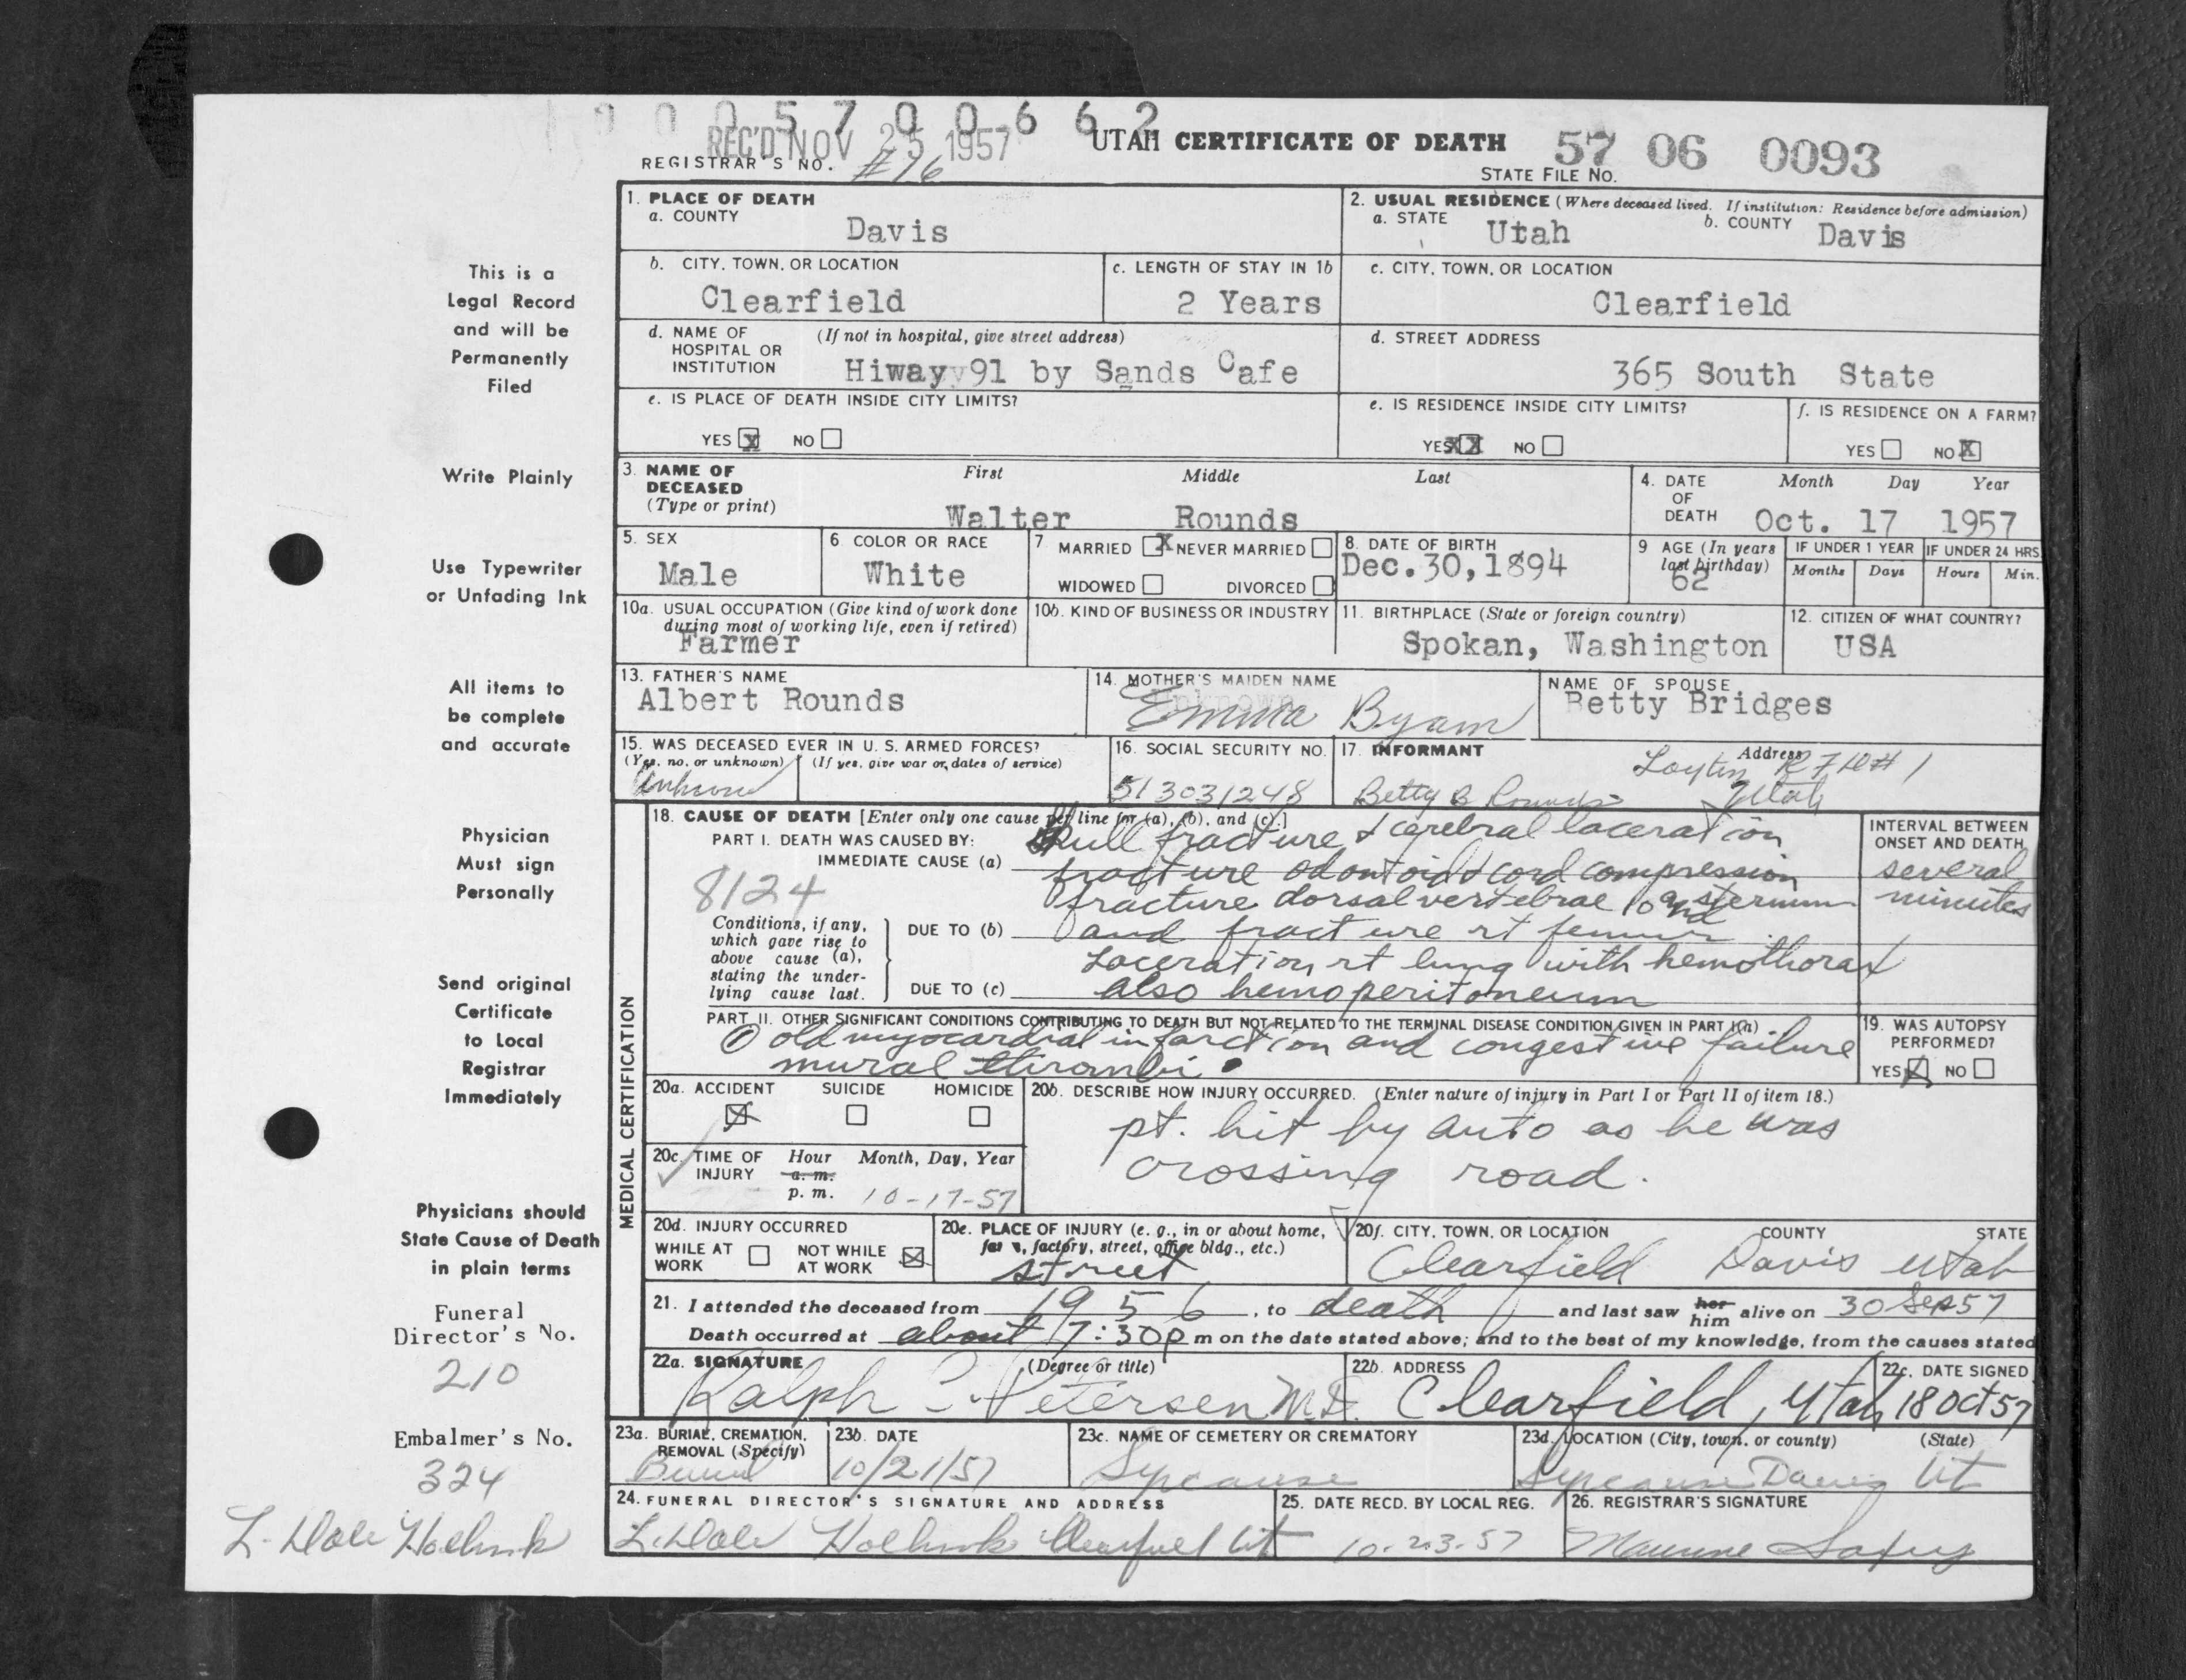 0 0 0 5 7 0 0 6 6 2
REC'D NOV 25 1957
UTAH CERTIFICATE OF DEATH
57 06 0093
REGISTRAR'S NO. #76
STATE FILE NO.
1. PLACE OF DEATH
a. COUNTY
Davis
2. USUAL RESIDENCE (Where deceased lived. If institution: Residence before admission)
a. STATE Utah b. COUNTY Davis
b. CITY, TOWN, OR LOCATION
Clearfield
c. LENGTH OF STAY IN 1b
2 Years
c. CITY, TOWN, OR LOCATION
Clearfield
d. NAME OF HOSPITAL OR INSTITUTION (If not in hospital, give street address)
Hiway 91 by Sands Cafe
d. STREET ADDRESS
365 South State
e. IS PLACE OF DEATH INSIDE CITY LIMITS?
YES X NO
e. IS RESIDENCE INSIDE CITY LIMITS?
YES XX NO
f. IS RESIDENCE ON A FARM?
YES NO X
3. NAME OF DECEASED (Type or print)
First Middle Last
Walter Rounds
4. DATE OF DEATH Month Day Year
Oct. 17 1957
5. SEX
Male
6. COLOR OR RACE
White
7 MARRIED X NEVER MARRIED
WIDOWED DIVORCED
8. DATE OF BIRTH
Dec.30,1894
9 AGE (In years last birthday)
62
IF UNDER 1 YEAR
Months Days
IF UNDER 24 HRS
Hours Min.
10a. USUAL OCCUPATION (Give kind of work done during most of working life, even if retired)
Farmer
10b. KIND OF BUSINESS OR INDUSTRY
11. BIRTHPLACE (State or foreign country)
Spokan, Washington
12. CITIZEN OF WHAT COUNTRY?
USA
13. FATHER'S NAME
Albert Rounds
14. MOTHER'S MAIDEN NAME
Unknown
Emma Byam
NAME OF SPOUSE
Betty Bridges
15. WAS DECEASED EVER IN U. S. ARMED FORCES?
(Yes, no, or unknown) (If yes, give war or dates of service)
Unknown
16. SOCIAL SECURITY NO.
513031248
17. INFORMANT Address
Betty B Rounds
Layton RFD# 1
Utah
18. CAUSE OF DEATH [Enter only one cause per line for (a), (b), and (c).]
PART I. DEATH WAS CAUSED BY:
IMMEDIATE CAUSE (a)
Skull fracture & cerebral laceration
fracture odontoid & cord compression
8124
fracture dorsal vertebrae 10 and sternum
Conditions, if any, which gave rise to above cause (a), stating the underlying cause last.
DUE TO (b) and fracture rt femur
Laceration rt lung with hemothorax
DUE TO (c) also hemoperitoneum
INTERVAL BETWEEN ONSET AND DEATH
several
minutes
PART II. OTHER SIGNIFICANT CONDITIONS CONTRIBUTING TO DEATH BUT NOT RELATED TO THE TERMINAL DISEASE CONDITION GIVEN IN PART I(a)
① old myocardial infarction and congestive failure
mural thrombi.
19. WAS AUTOPSY PERFORMED?
YES X NO
20a. ACCIDENT SUICIDE HOMICIDE
20b. DESCRIBE HOW INJURY OCCURRED. (Enter nature of injury in Part I or Part II of item 18.)
pt. hit by auto as he was
crossing road.
20c. TIME OF INJURY Hour Month, Day, Year
a. m.
p. m. 10-17-57
20d. INJURY OCCURRED
WHILE AT WORK NOT WHILE AT WORK
20e. PLACE OF INJURY (e. g., in or about home, farm, factory, street, office bldg., etc.)
street
20f. CITY, TOWN, OR LOCATION COUNTY STATE
Clearfield Davis Utah
21. I attended the deceased from 1956, to death and last saw her him alive on 30 Sep 57
Death occurred at about 7:30p m on the date stated above; and to the best of my knowledge, from the causes stated
22a. SIGNATURE (Degree or title)
Ralph C Petersen M.D.
22b. ADDRESS
Clearfield, Utah
22c. DATE SIGNED
18 Oct 57
23a. BURIAL, CREMATION, REMOVAL (Specify)
Burial
23b. DATE
10/21/57
23c. NAME OF CEMETERY OR CREMATORY
Syracuse
23d. LOCATION (City, town, or county) (State)
Syracuse Davis Ut
24. FUNERAL DIRECTOR'S SIGNATURE AND ADDRESS
L. Dale Holbrook Clearfield Ut
25. DATE RECD. BY LOCAL REG.
10-23-57
26. REGISTRAR'S SIGNATURE
Maurine
MEDICAL CERTIFICATION
This is a
Legal Record
and will be
Permanently
Filed
Write Plainly
Use Typewriter
or Unfading Ink
All items to
be complete
and accurate
Physician
Must sign
Personally
Send original
Certificate
to Local
Registrar
Immediately
Physicians should
State Cause of Death
in plain terms
Funeral
Director's No.
210
Embalmer's No.
324
L. Dale Holbrook